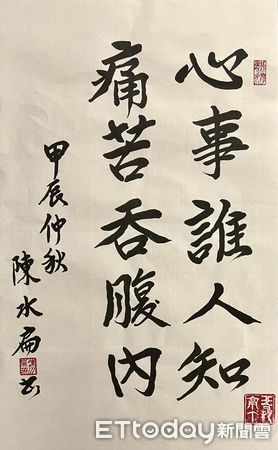 心事誰人知
痛苦吞腹內
甲辰仲秋
陳水扁書
ETtoday新聞雲